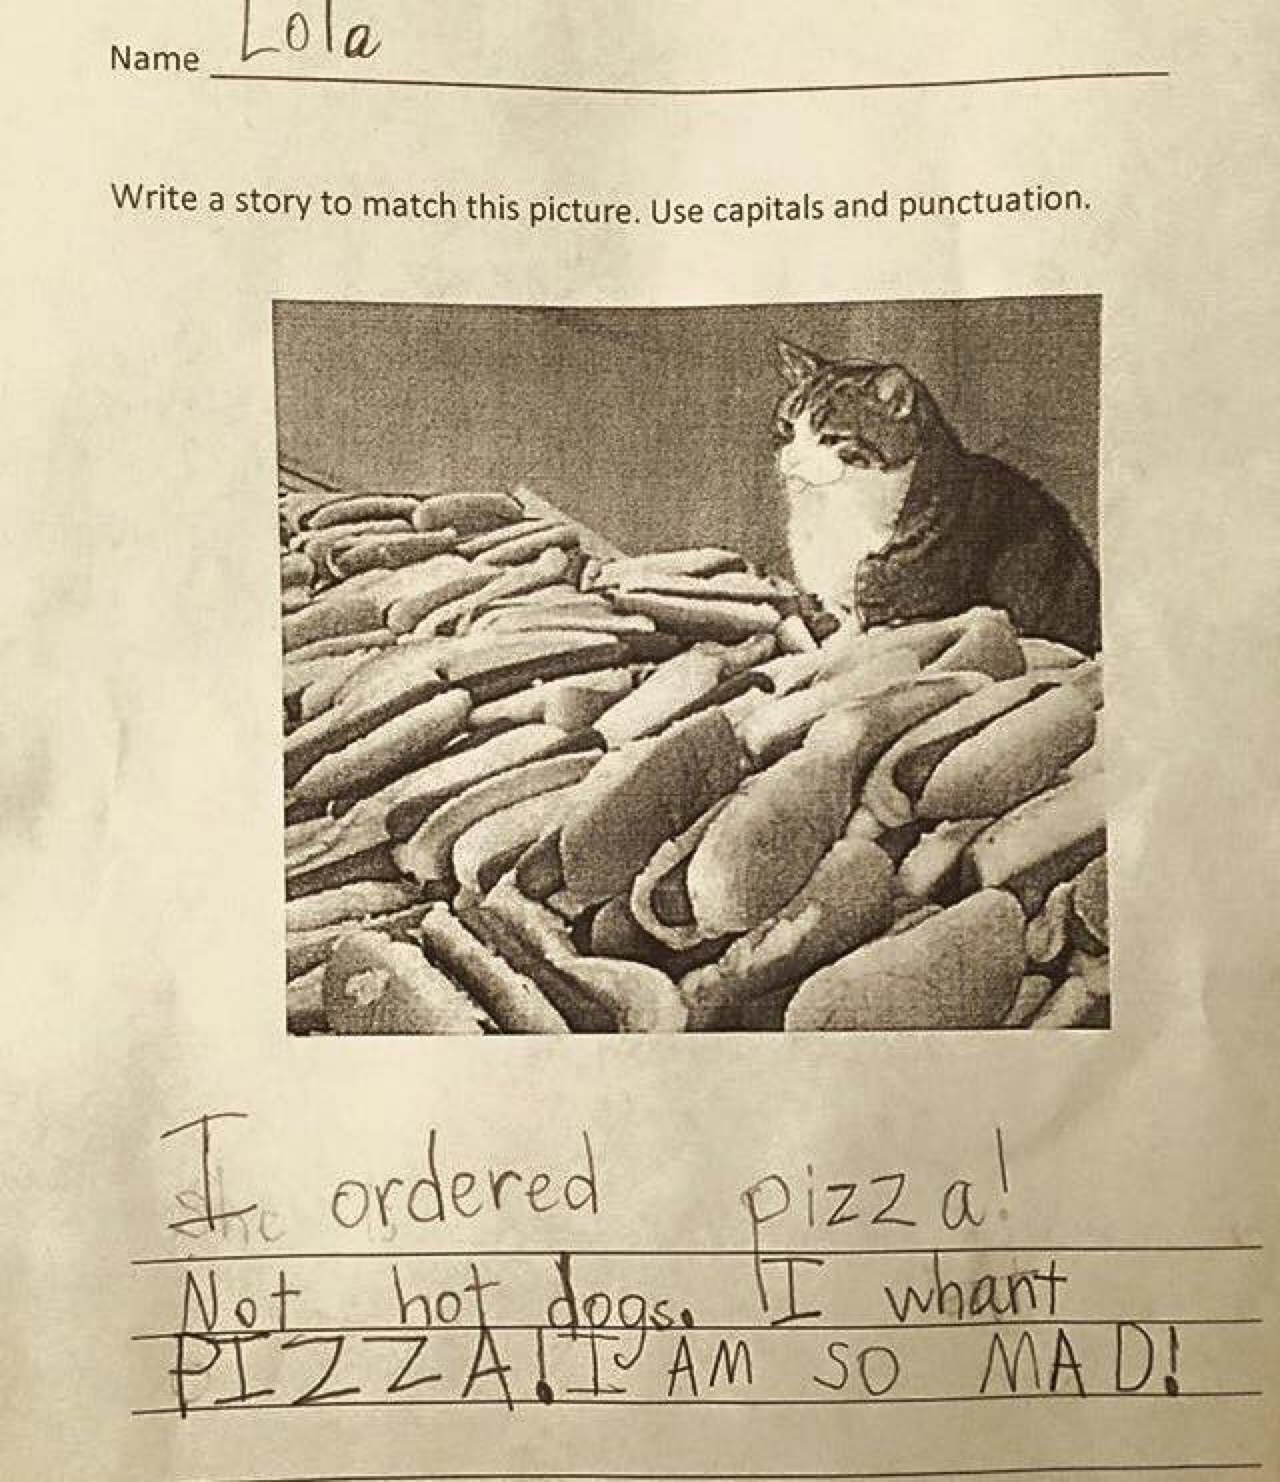 Name Lola
Write a story to match this picture. Use capitals and punctuation.
I ordered pizza!
Not hot dogs. I whant
PIZZA! I AM SO MAD!